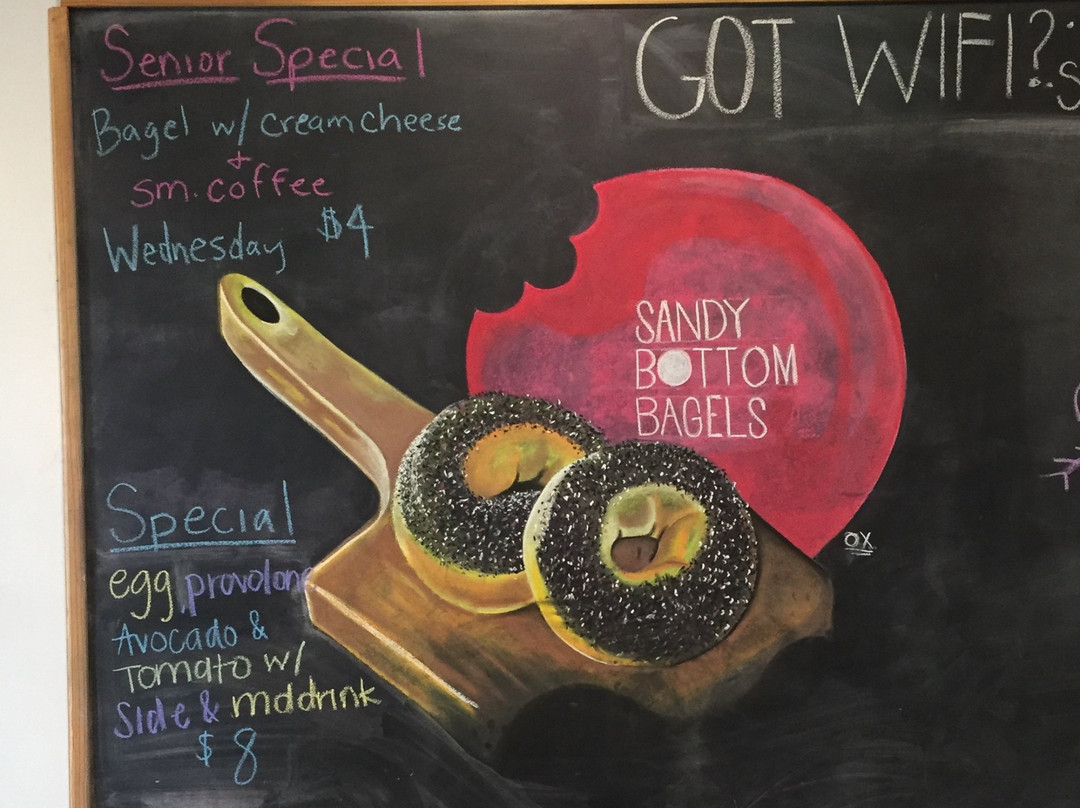 Senior Special
Bagel w/ creamcheese
+
sm. coffee
Wednesday $4
GOT WIFI?
SANDY
BOTTOM
BAGELS
OX
Special
egg, provolone
Avocado &
Tomato w/
Side & mddrink
$8